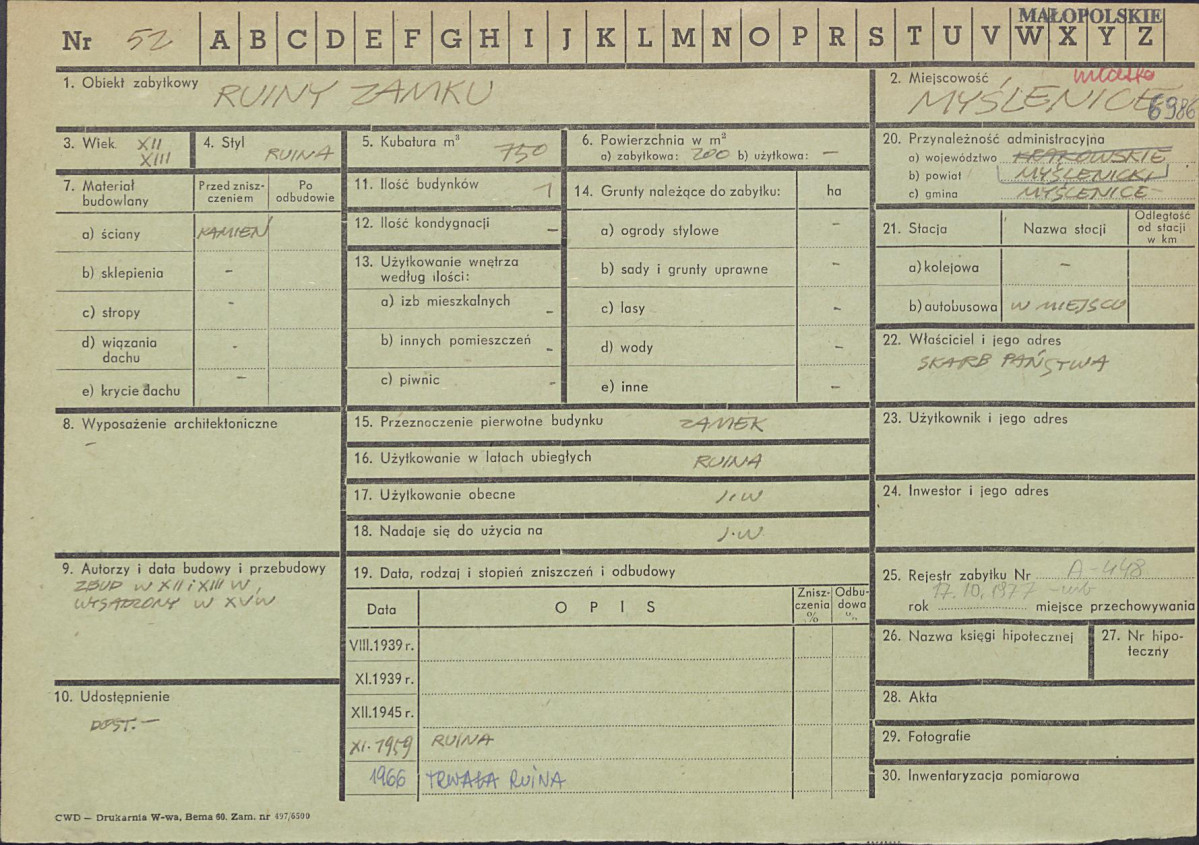 MAŁOPOLSKIE
Nr 52 A B C D E F G H I J K L M N O P R S T U V W X Y Z
1. Obiekt zabytkowy RUINY ZAMKU
2. Miejscowość miasto
MYŚLENICE 6986
3. Wiek XII
XIII
4. Styl RUINA
5. Kubatura m³ 750
6. Powierzchnia w m²
a) zabytkowa: 200 b) użytkowa: —
20. Przynależność administracyjna
a) województwo KRAKOWSKIE
b) powiat MYŚLENICKI
c) gmina MYŚLENICE
7. Materiał budowlany
Przed znisz-
czeniem
Po
odbudowie
a) ściany KAMIEŃ
b) sklepienia -
c) stropy -
d) wiązania
dachu -
e) krycie dachu -
11. Ilość budynków 1
12. Ilość kondygnacji -
13. Użytkowanie wnętrza
według ilości:
a) izb mieszkalnych -
b) innych pomieszczeń -
c) piwnic -
14. Grunty należące do zabytku: ha
a) ogrody stylowe -
b) sady i grunty uprawne -
c) lasy -
d) wody -
e) inne -
21. Stacja Nazwa stacji
Odległość
od stacji
w km
a) kolejowa -
b) autobusowa W MIEJSCU
22. Właściciel i jego adres
SKARB PAŃSTWA
8. Wyposażenie architektoniczne
-
15. Przeznaczenie pierwotne budynku ZAMEK
16. Użytkowanie w latach ubiegłych RUINA
17. Użytkowanie obecne J.W
18. Nadaje się do użycia na J.W
23. Użytkownik i jego adres
24. Inwestor i jego adres
9. Autorzy i data budowy i przebudowy
ZBUD W XII i XIII W,
WYSADZONY W XV W
19. Data, rodzaj i stopień zniszczeń i odbudowy
Data OPIS
Znisz-
czenia
%
Odbu-
dowa
%
VIII.1939 r.
XI.1939 r.
XII.1945 r.
XI.1959 RUINA
1966 TRWAŁA RUINA
25. Rejestr zabytku Nr A-448
17.10.1977
rok miejsce przechowywania
26. Nazwa księgi hipotecznej
27. Nr hipo-
teczny
10. Udostępnienie
DOST. —
28. Akta
29. Fotografie
30. Inwentaryzacja pomiarowa
CWD — Drukarnia W-wa, Bema 60. Zam. nr 497/6500